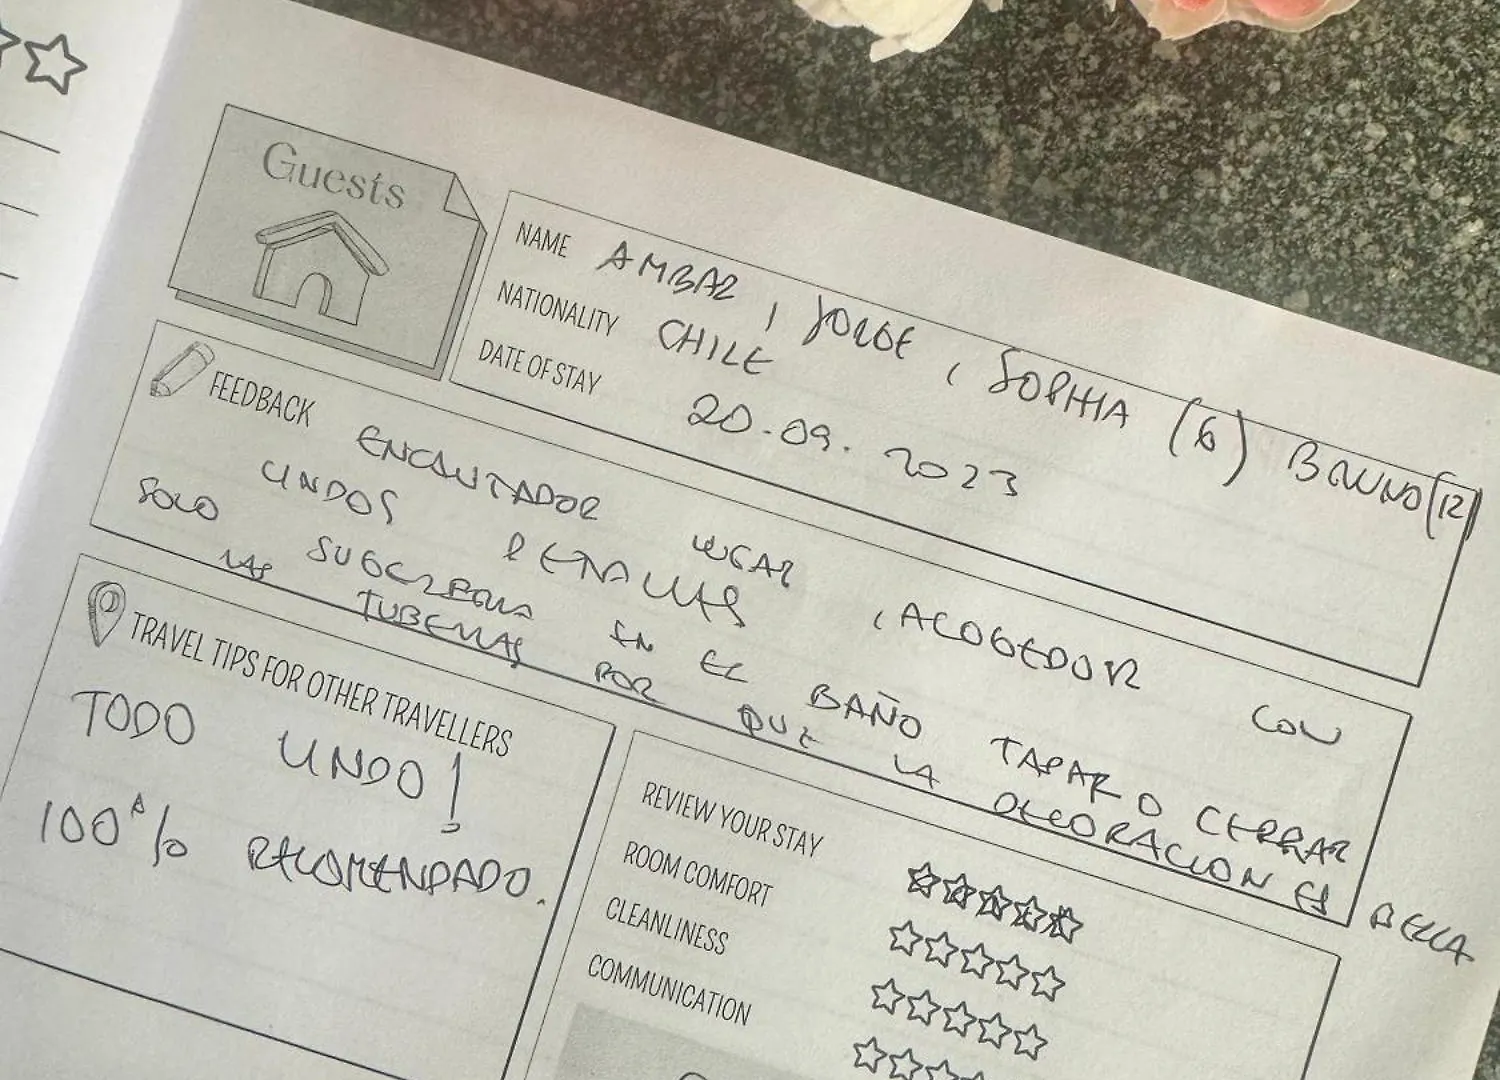 Guests
NAME AMBAR, JORGE, SOPHIA (6) BRUNO (12)
NATIONALITY CHILE
DATE OF STAY 20.09.2023
FEEDBACK ENCANTADOR LUGAR, ACOGEDOR CON
LINDOS DETALLES
SOLO SUGERERIA EN EL BAÑO TAPAR O CERRAR
LAS TUBERIAS POR QUE LA DECORACION ES BELLA
TRAVEL TIPS FOR OTHER TRAVELLERS
TODO LINDO!
100% RECOMENDADO.
REVIEW YOUR STAY
ROOM COMFORT
CLEANLINESS
COMMUNICATION